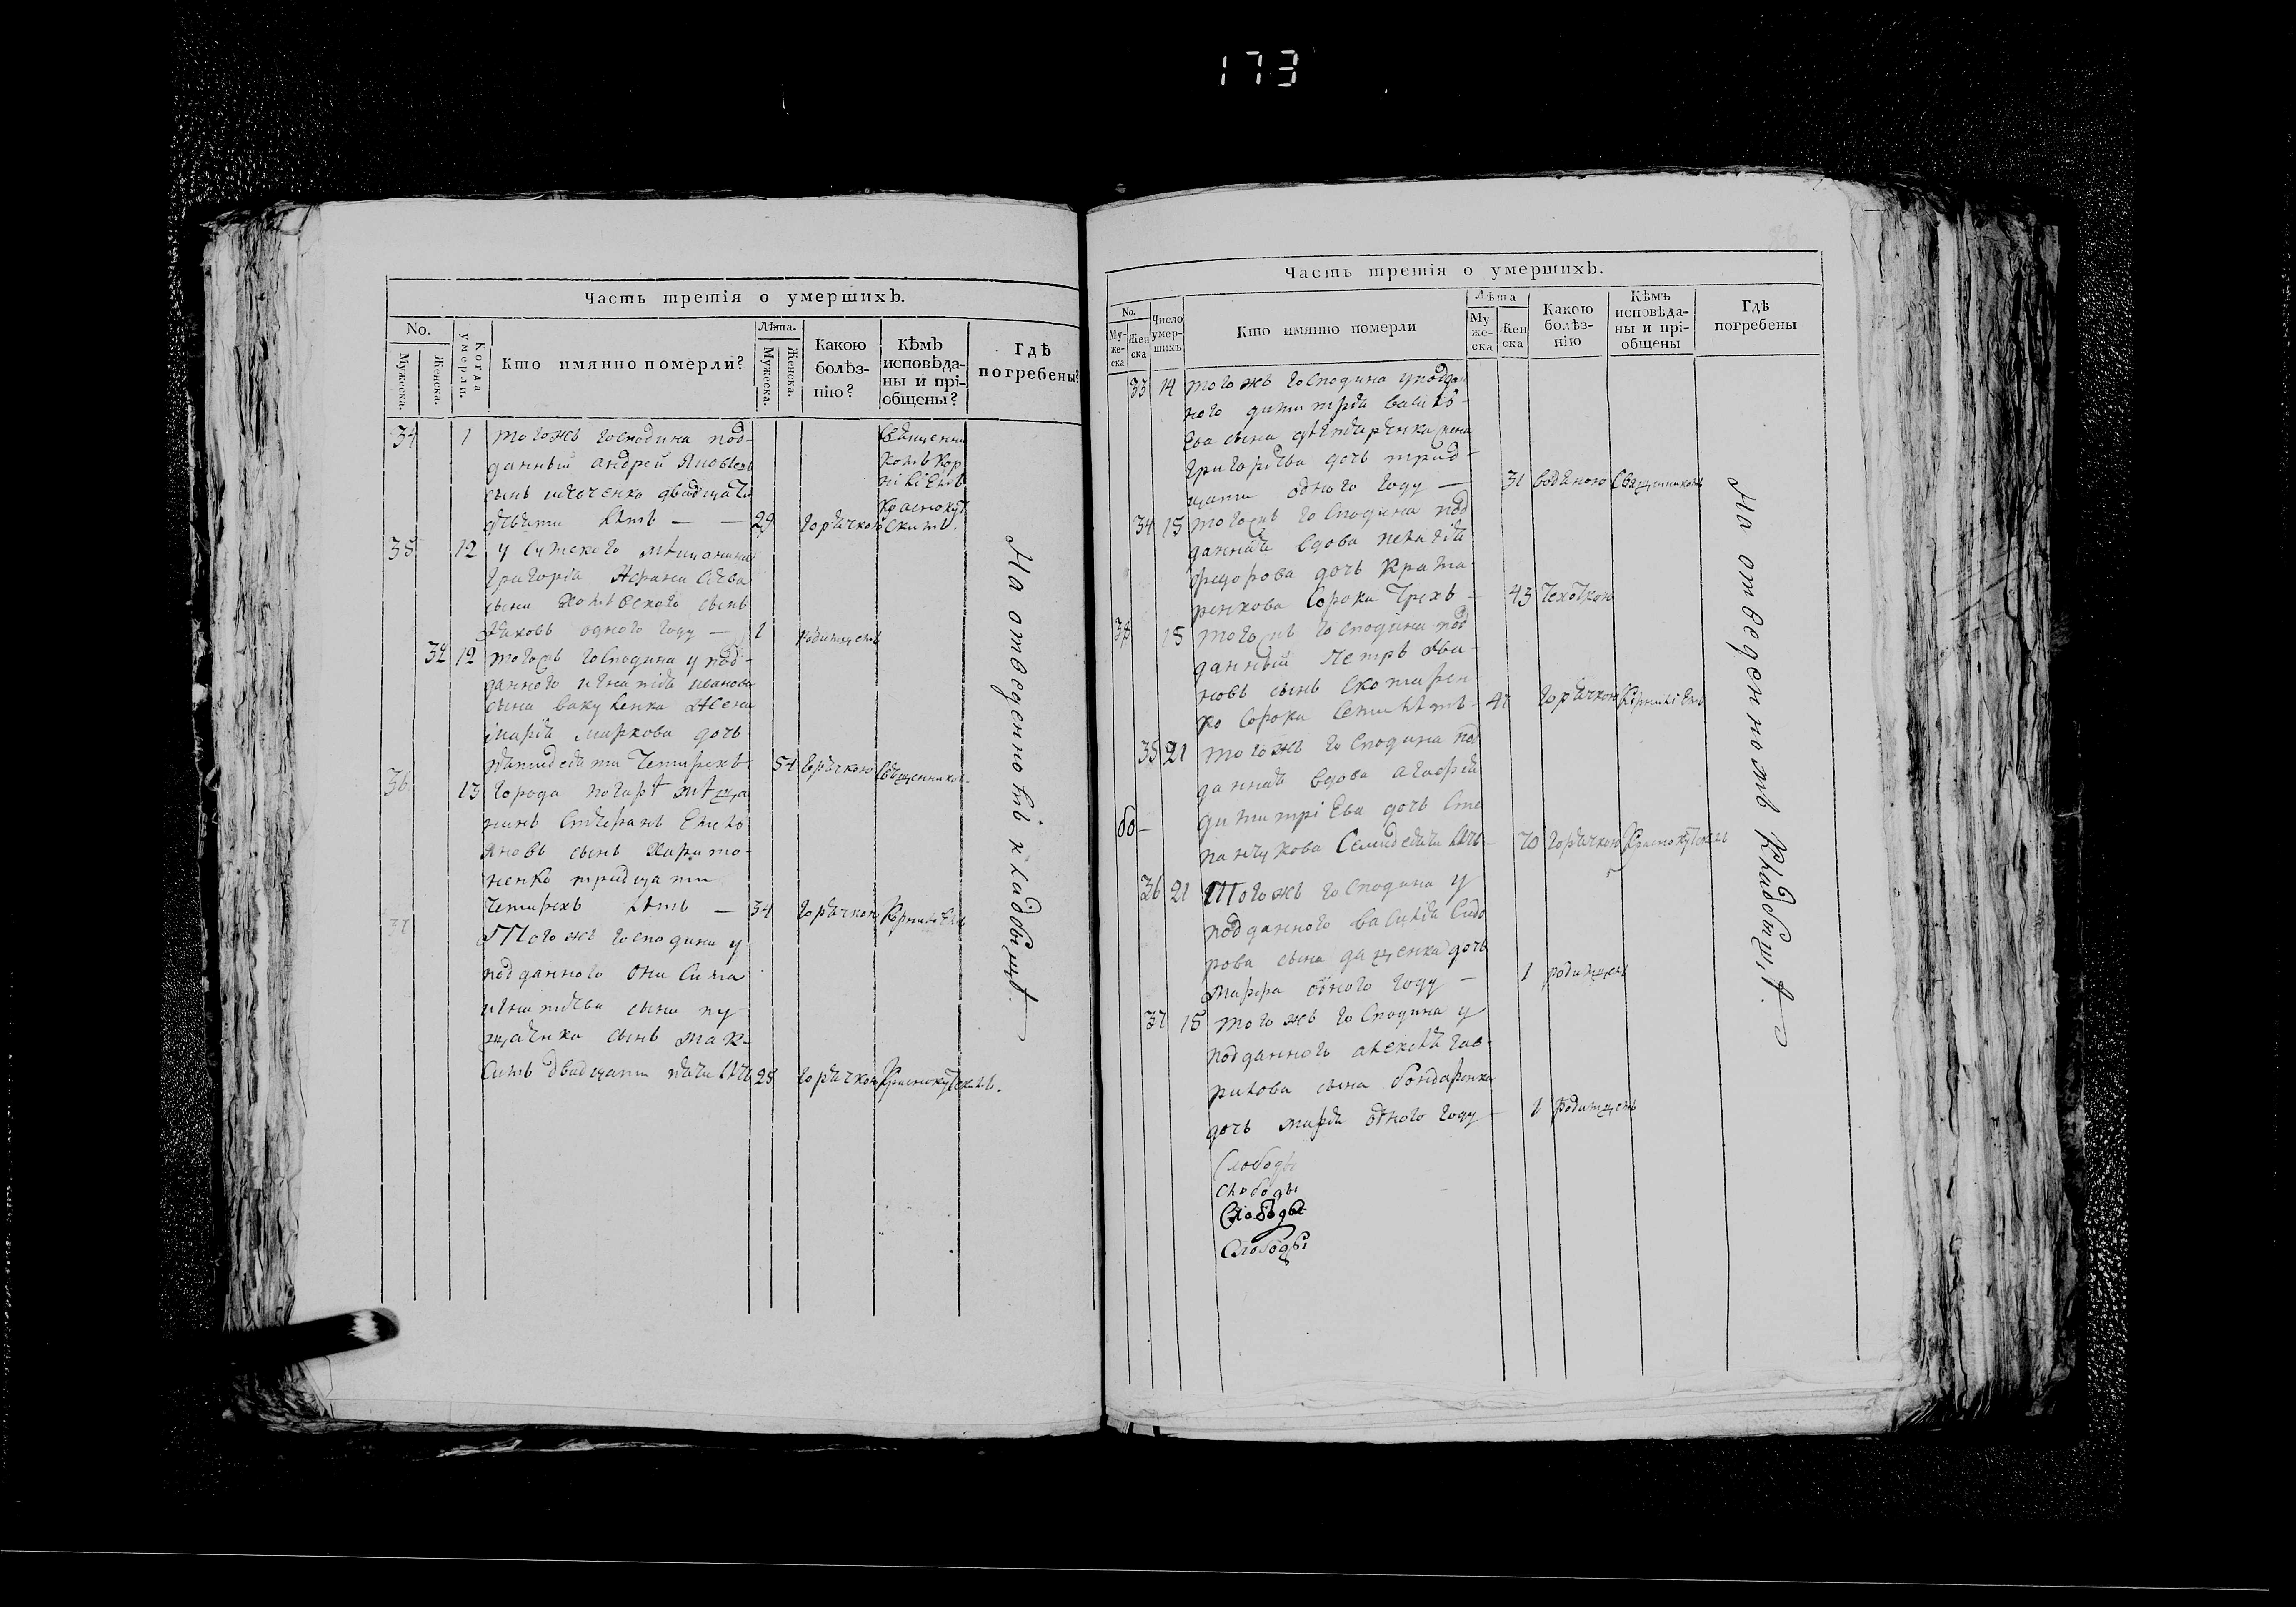 173
Часть третія о умершихъ.
No.
Мужеска.
Женска.
Когда умерли.
Кто имянно померли?
Лѣта.
Мужеска.
Женска.
Какою
болѣз-
нію?
Кѣмъ
исповѣда-
ны и прі-
общены?
Гдѣ
погребены?
34 1 тогожъ господина под-
данный андрей Яковлевъ
сынъ двадцати
девяти лѣтъ — 29 горячкою
священни
комъ Кор
нилиемъ
Краснокут
скимъ.
35 12 у Сумского мѣщанина
григорія
сына сынъ
Яковъ одного году — 1 родимцемъ
32 12 тогожъ господина у под-
данного игнатія иванова
сына вакуленка Жена
марія Маркова дочь
пятидесяти четирехъ 54 горячкою священником
36 13 города мѣща
нинъ Стефанъ Емель
яновъ сынъ Харито-
ненко тридцати
четирехъ лѣтъ — 34 горячкою Корнилиемъ
37 Тогожъ господина у
подданного Онисима
игнатіева сына пу
щаенка сынъ Мак-
симъ двадцати пяти лѣтъ 25 горячкою Краснокутскимъ.
На отведенномъ кладбищѣ.
Часть третія о умершихъ.
No.
Му-
же-
ска
Жен
ска
Число
умер-
шихъ
Кто имянно померли
Лѣта
Му
же-
ска
Жен
ска
Какою
болѣз-
нію
Кѣмъ
исповѣда-
ны и прі-
общены
Гдѣ
погребены
33 14 тогожъ господина уподдан
ного димитрія василь-
ева сына жена
григоріева дочь трид-
цати одного году — 31 водяною Священникомъ
34 15 тогожъ господина под
данная вдова пелагія
федорова дочь Крама-
ренкова сорока трехъ - 43 чехоткою
38 15 тогожъ господина под
данный Петръ Ива-
новъ сынъ скотарен
ко сорока семи лѣтъ - 47 горячкою Корниліемъ
35 21 тогожъ господина по
данная вдова агафія
димитріева дочь Сте
панчукова Семидесяти лѣтъ - 70 горячкою Краснокутскимъ
60 -
36 21 Тогожъ господина у
подданного василія Сидо
рова сына даценка дочь
Марфа одного году — 1 родимцемъ
37 15 тогожъ господина у
подданного алексѣя гав-
рилова сына бондаренка
дочь марія одного году - 1 родимцемъ
Слободы
слободы
Слободы
Слободы
На отведенномъ кладбищѣ.